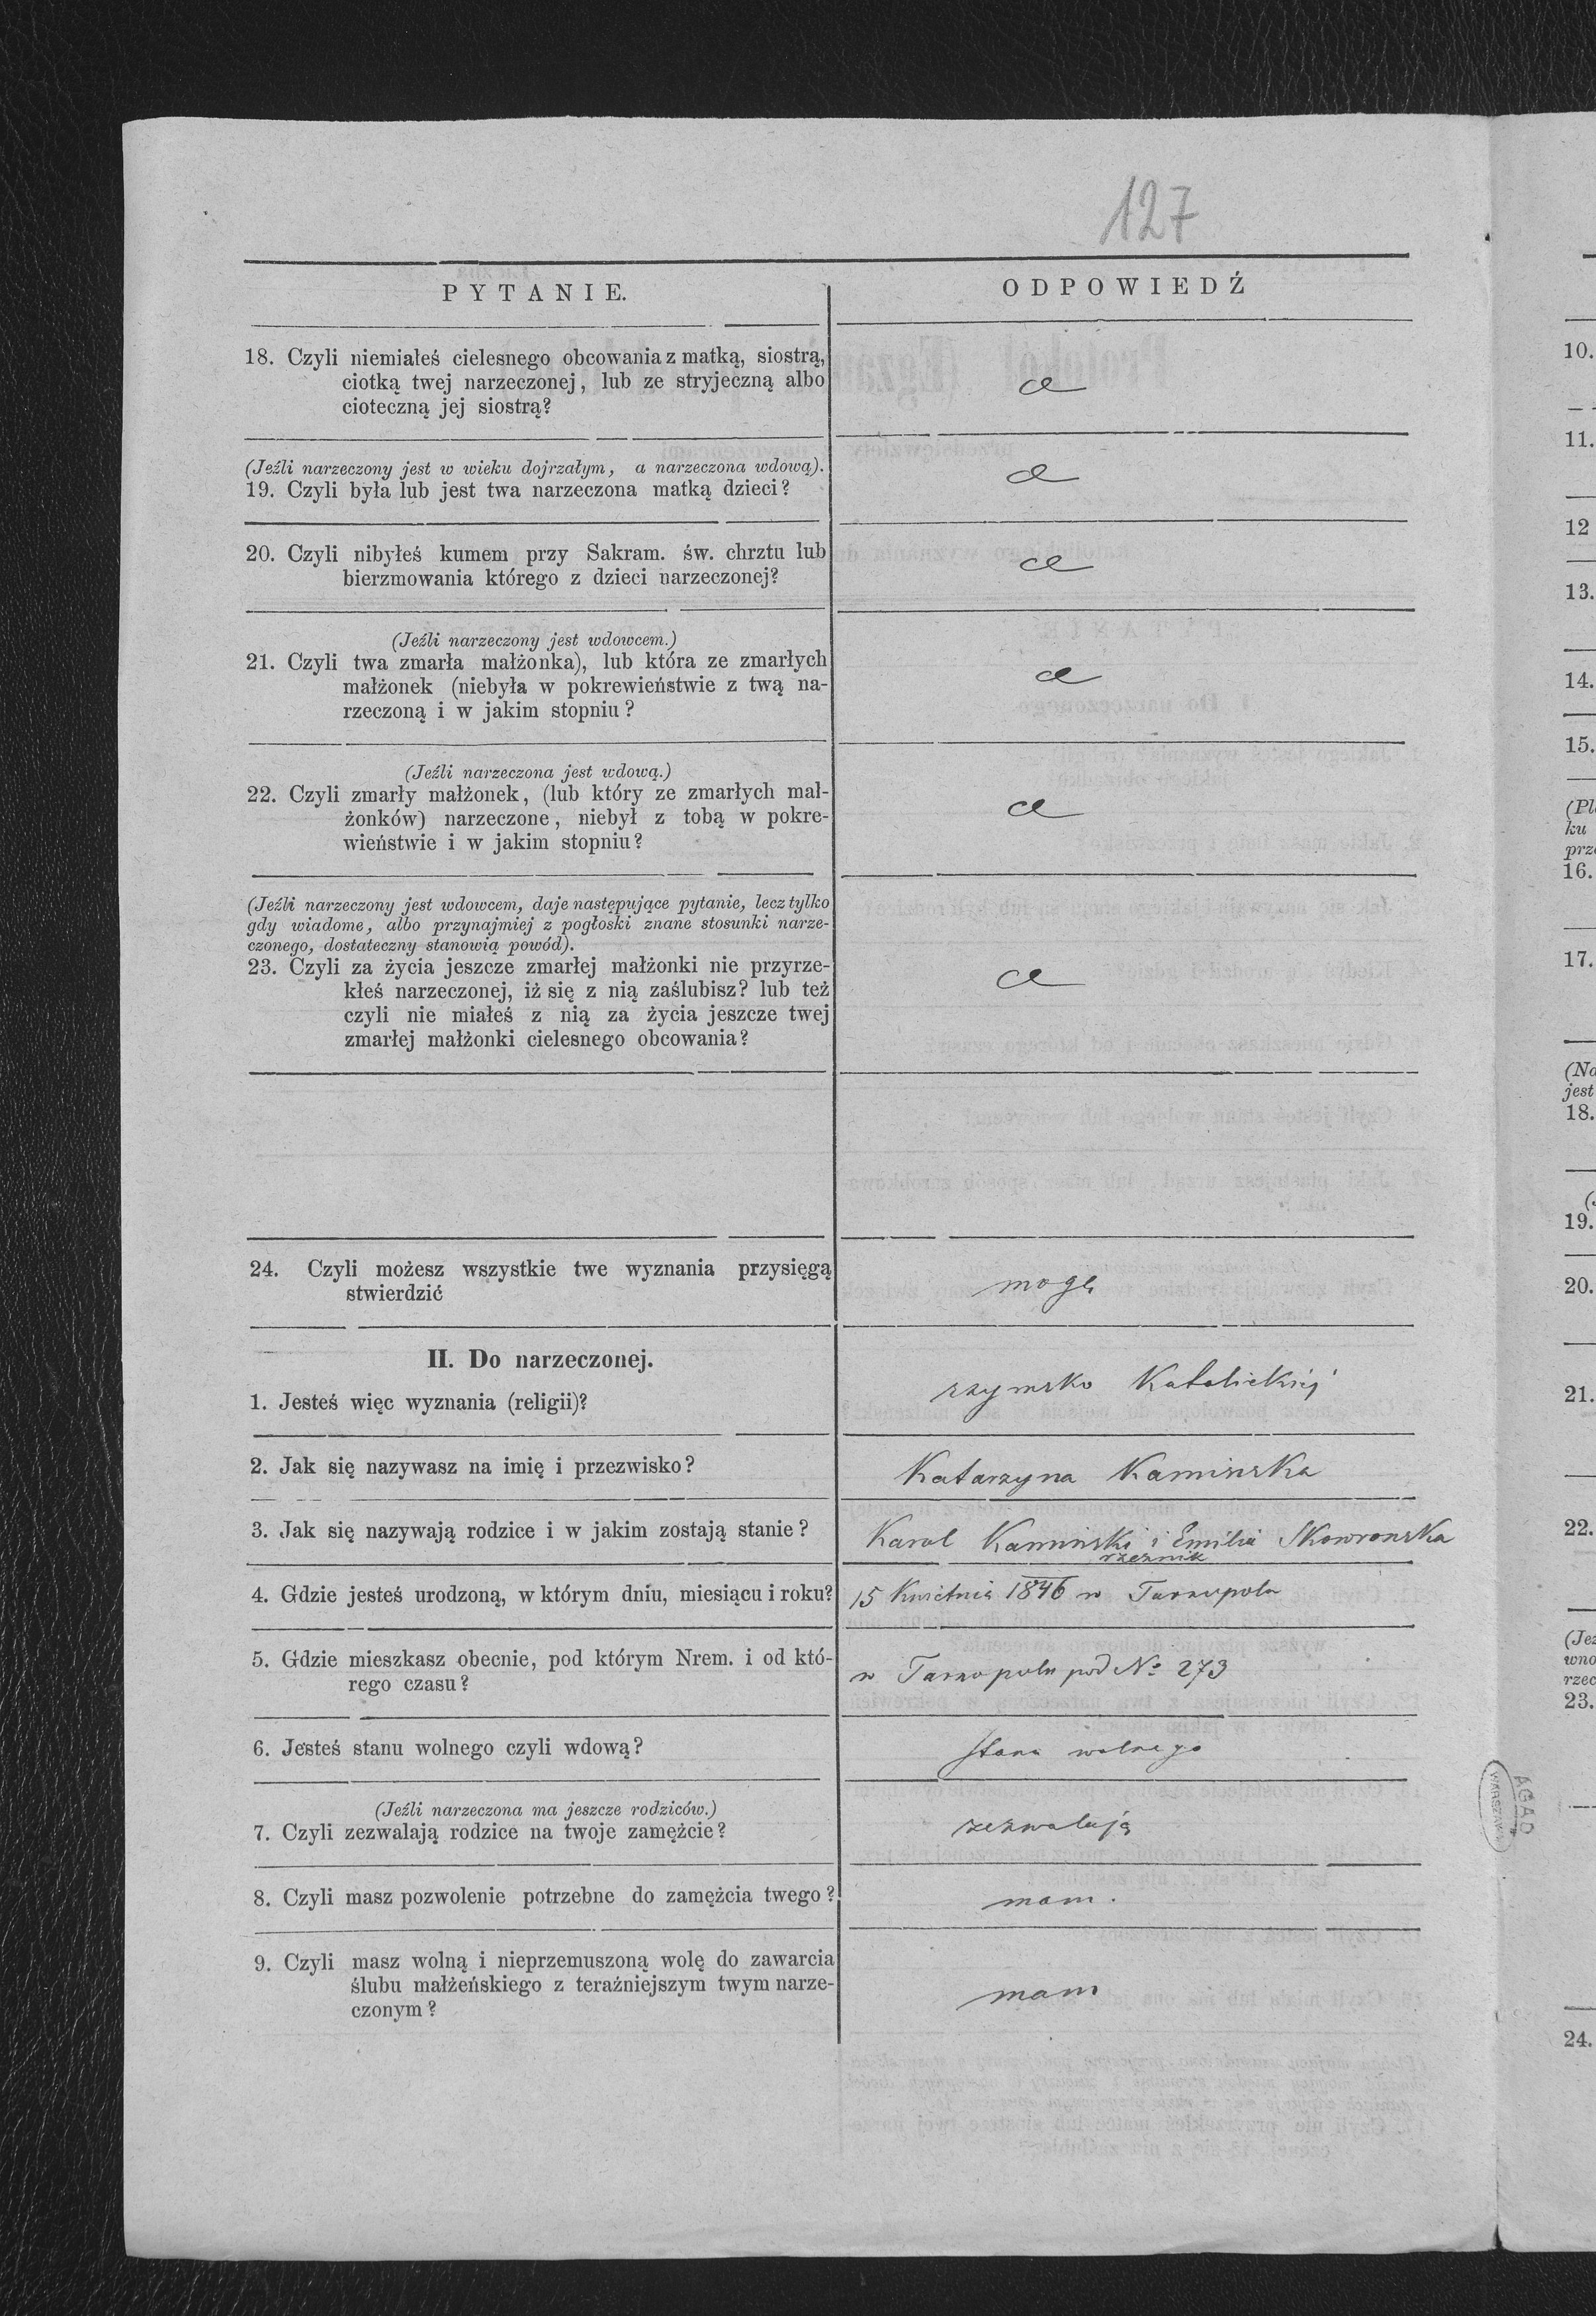 127
PYTANIE.
ODPOWIEDŹ
18. Czyli niemiałeś cielesnego obcowania z matką, siostrą,
ciotką twej narzeczonej, lub ze stryjeczną albo
cioteczną jej siostrą?
(Jeźli narzeczony jest w wieku dojrzałym, a narzeczona wdową).
19. Czyli była lub jest twa narzeczona matką dzieci?
20. Czyli nibyłeś kumem przy Sakram. św. chrztu lub
bierzmowania którego z dzieci narzeczonej?
(Jeźli narzeczony jest wdowcem.)
21. Czyli twa zmarła małżonka), lub która ze zmarłych
małżonek (niebyła w pokrewieństwie z twą na-
rzeczoną i w jakim stopniu?
(Jeźli narzeczona jest wdową.)
22. Czyli zmarły małżonek, (lub który ze zmarłych mał-
żonków) narzeczone, niebył z tobą w pokre-
wieństwie i w jakim stopniu?
(Jeźli narzeczony jest wdowcem, daje następujące pytanie, lecz tylko
gdy wiadome, albo przynajmiej z pogłoski znane stosunki narze-
czonego, dostateczny stanowią powód).
23. Czyli za życia jeszcze zmarłej małżonki nie przyrze-
kłeś narzeczonej, iż się z nią zaślubisz? lub też
czyli nie miałeś z nią za życia jeszcze twej
zmarłej małżonki cielesnego obcowania?
24. Czyli możesz wszystkie twe wyznania przysięgą
stwierdzić
mogę
II. Do narzeczonej.
1. Jesteś więc wyznania (religii)?
rzymsko Katolickiej
2. Jak się nazywasz na imię i przezwisko?
Katarzyna Kaminska
3. Jak się nazywają rodzice i w jakim zostają stanie?
Karol Kaminski i Emilia Skowronska
rzeznik
4. Gdzie jesteś urodzoną, w którym dniu, miesiącu i roku?
15 Kwietnia 1846 w Tarnopolu
5. Gdzie mieszkasz obecnie, pod którym Nrem. i od któ-
rego czasu?
w Tarnopolu pod No 273
6. Jesteś stanu wolnego czyli wdową?
stanu wolnego
(Jeźli narzeczona ma jeszcze rodziców.)
7. Czyli zezwalają rodzice na twoje zamężcie?
zezwalają
8. Czyli masz pozwolenie potrzebne do zamężcia twego?
mam.
9. Czyli masz wolną i nieprzemuszoną wolę do zawarcia
ślubu małżeńskiego z teraźniejszym twym narze-
czonym?
mam
AGAD
WARSZAWA
10.
11.
12
13.
14.
15.
ku
16.
17.
jest
18.
19.
20.
21.
22.
23.
24.